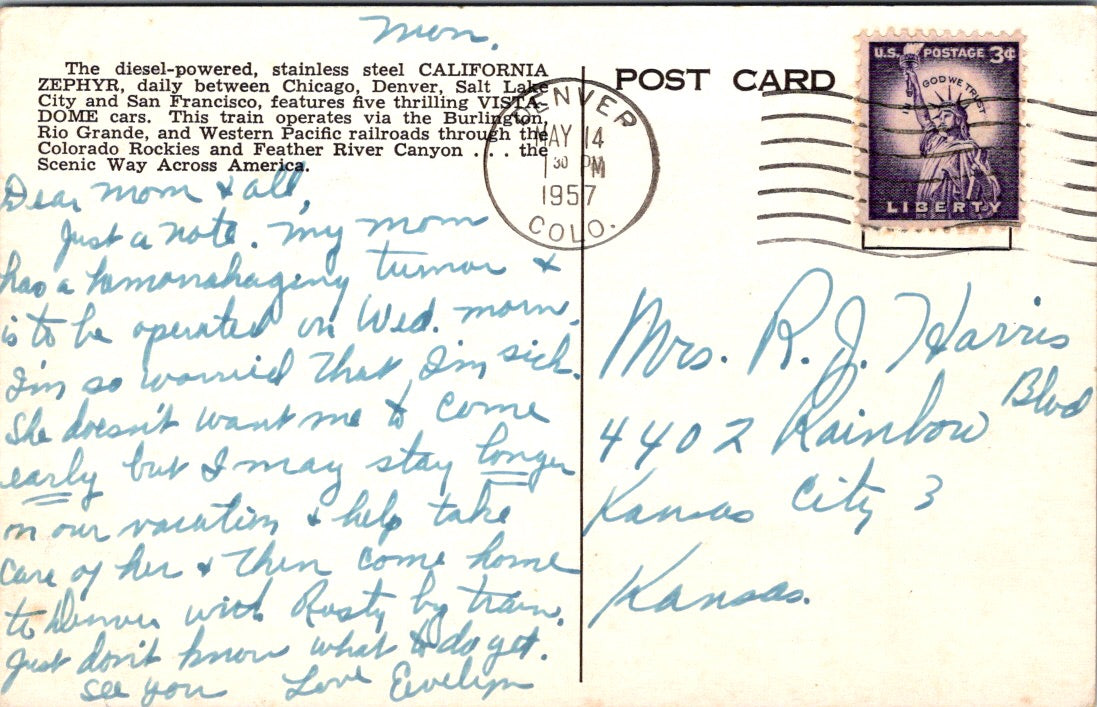 Mon.
The diesel-powered, stainless steel CALIFORNIA
ZEPHYR, daily between Chicago, Denver, Salt Lake
City and San Francisco, features five thrilling VISTA-
DOME cars. This train operates via the Burlington,
Rio Grande, and Western Pacific railroads through the
Colorado Rockies and Feather River Canyon . . . the
Scenic Way Across America.
Dear Mom & all,
Just a note. My mom
has a hemonahaging tumor &
is to be operated on Wed. morn.
I'm so worried that I'm sick.
She doesn't want me to come
early but I may stay longer
on our vacation & help take
care of her & then come home
to Denver with Rusty by train.
Just don't know what to do yet.
See you Love Evelyn
POST CARD
DENVER
MAY 14
1 30 PM
1957
COLO.
U.S. POSTAGE 3¢
IN GOD WE TRUST
LIBERTY
Mrs. R. J. Harris
4402 Rainbow Blvd
Kansas City 3
Kansas.